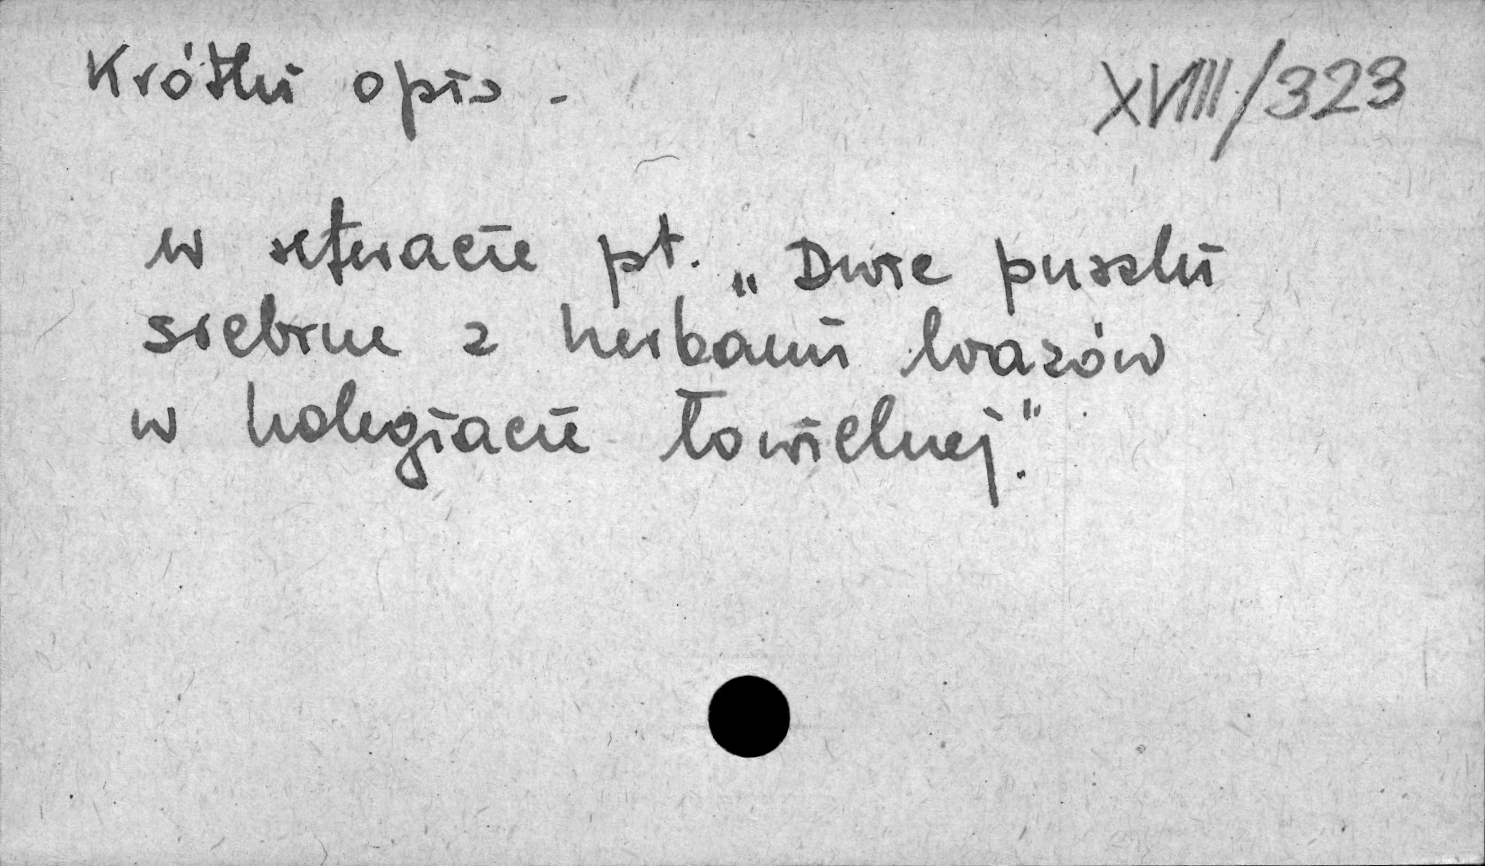 Krótki opis - XVIII/323
w referacie pt. „Dwie puszki
srebrne z herbami
w kolegiacie łowickiej."